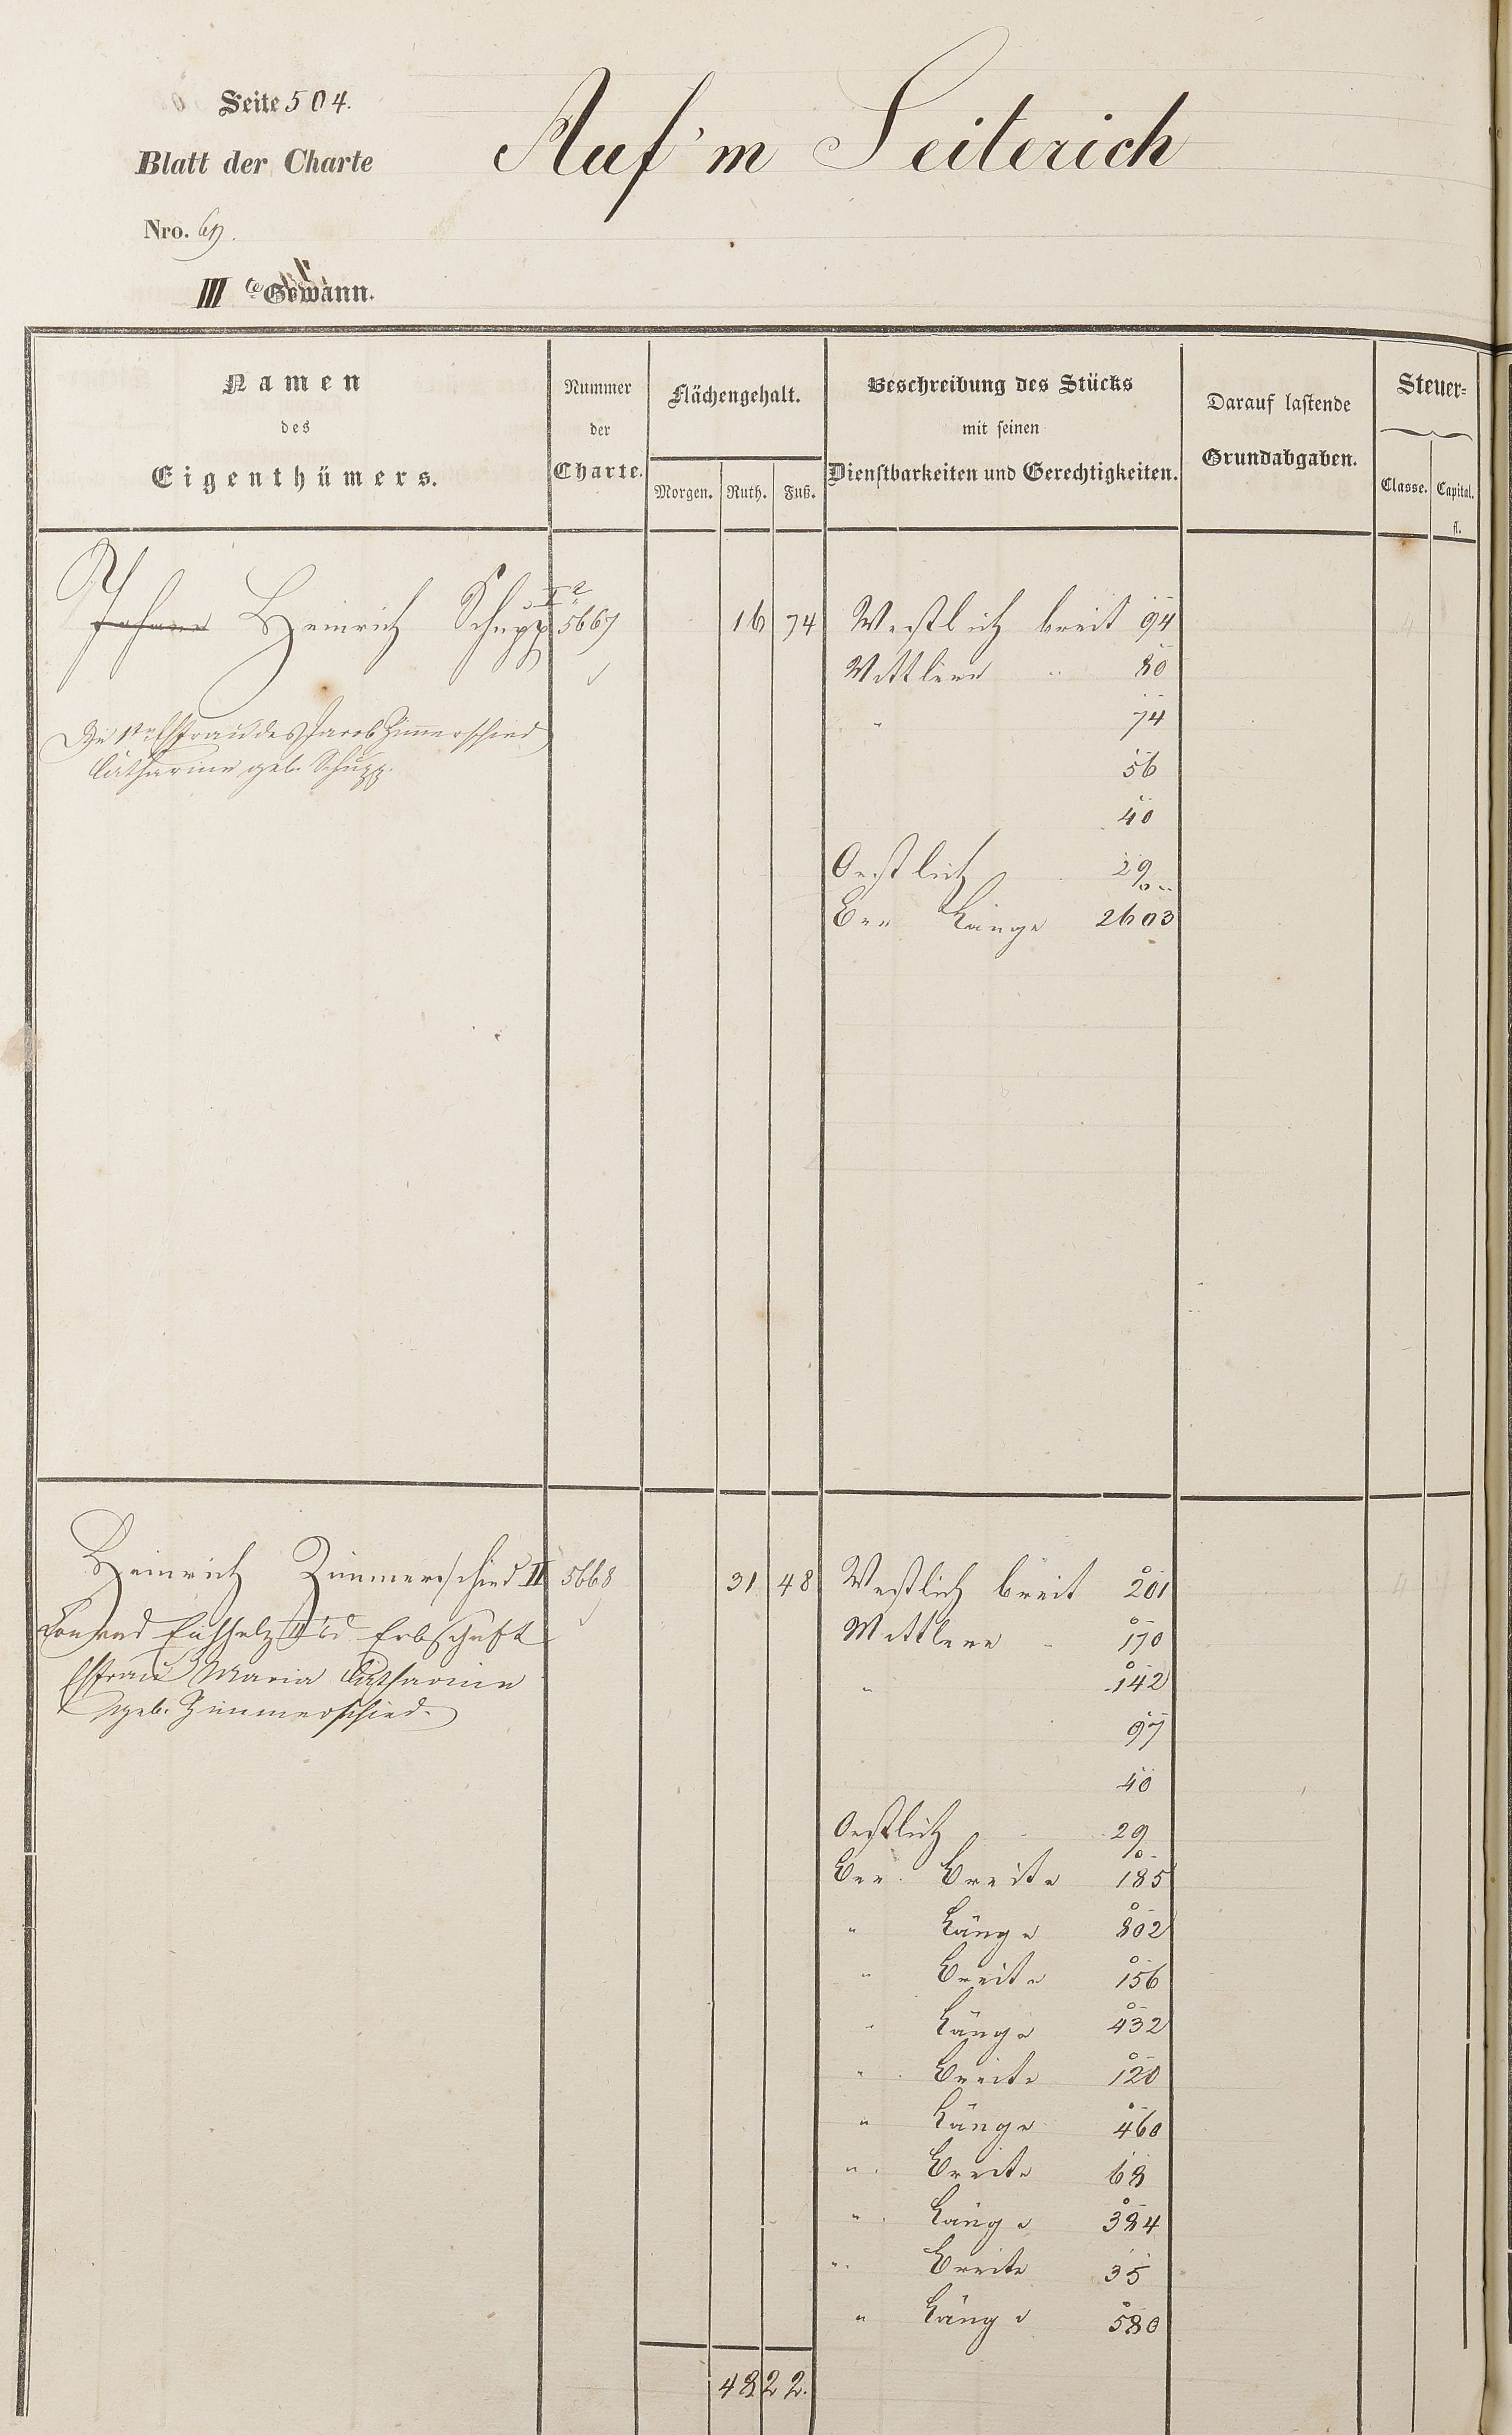 Seite 504.
Blatt der Charte
Nro. 67.
III te Gewann.
Auf'm Seiterich
Namen
des
Eigenthümers.
Nummer
der
Charte.
Flächengehalt.
Morgen. Ruth. Fuß.
Beschreibung des Stücks
mit seinen
Dienstbarkeiten und Gerechtigkeiten.
Darauf lastende
Grundabgaben.
Steuer=
Classe. Capital.
fl.
Johann Heinrich Schupp 5667 16 74 Westlich breit 94
Mittlere " 80
" 74
56
40
Die Ehefrau des Jacob Zimmerschied
Catharine geb. Schupp.
Oestlich 29
Länge 2603
Heinrich Zimmerschied II 5668 31 48 Westlich breit 201
Conrad Erbschaft
Ehefrau Maria Catharine
geb. Zimmerschied.
Mittlere " 170
" 142
97
40
Oestlich 29
Breite 185
" Länge 802
" Breite 156
" Länge 432
" Breite 120
" Länge 460
" Breite 68
" Länge 384
" Breite 35
" Länge 580
48 22.